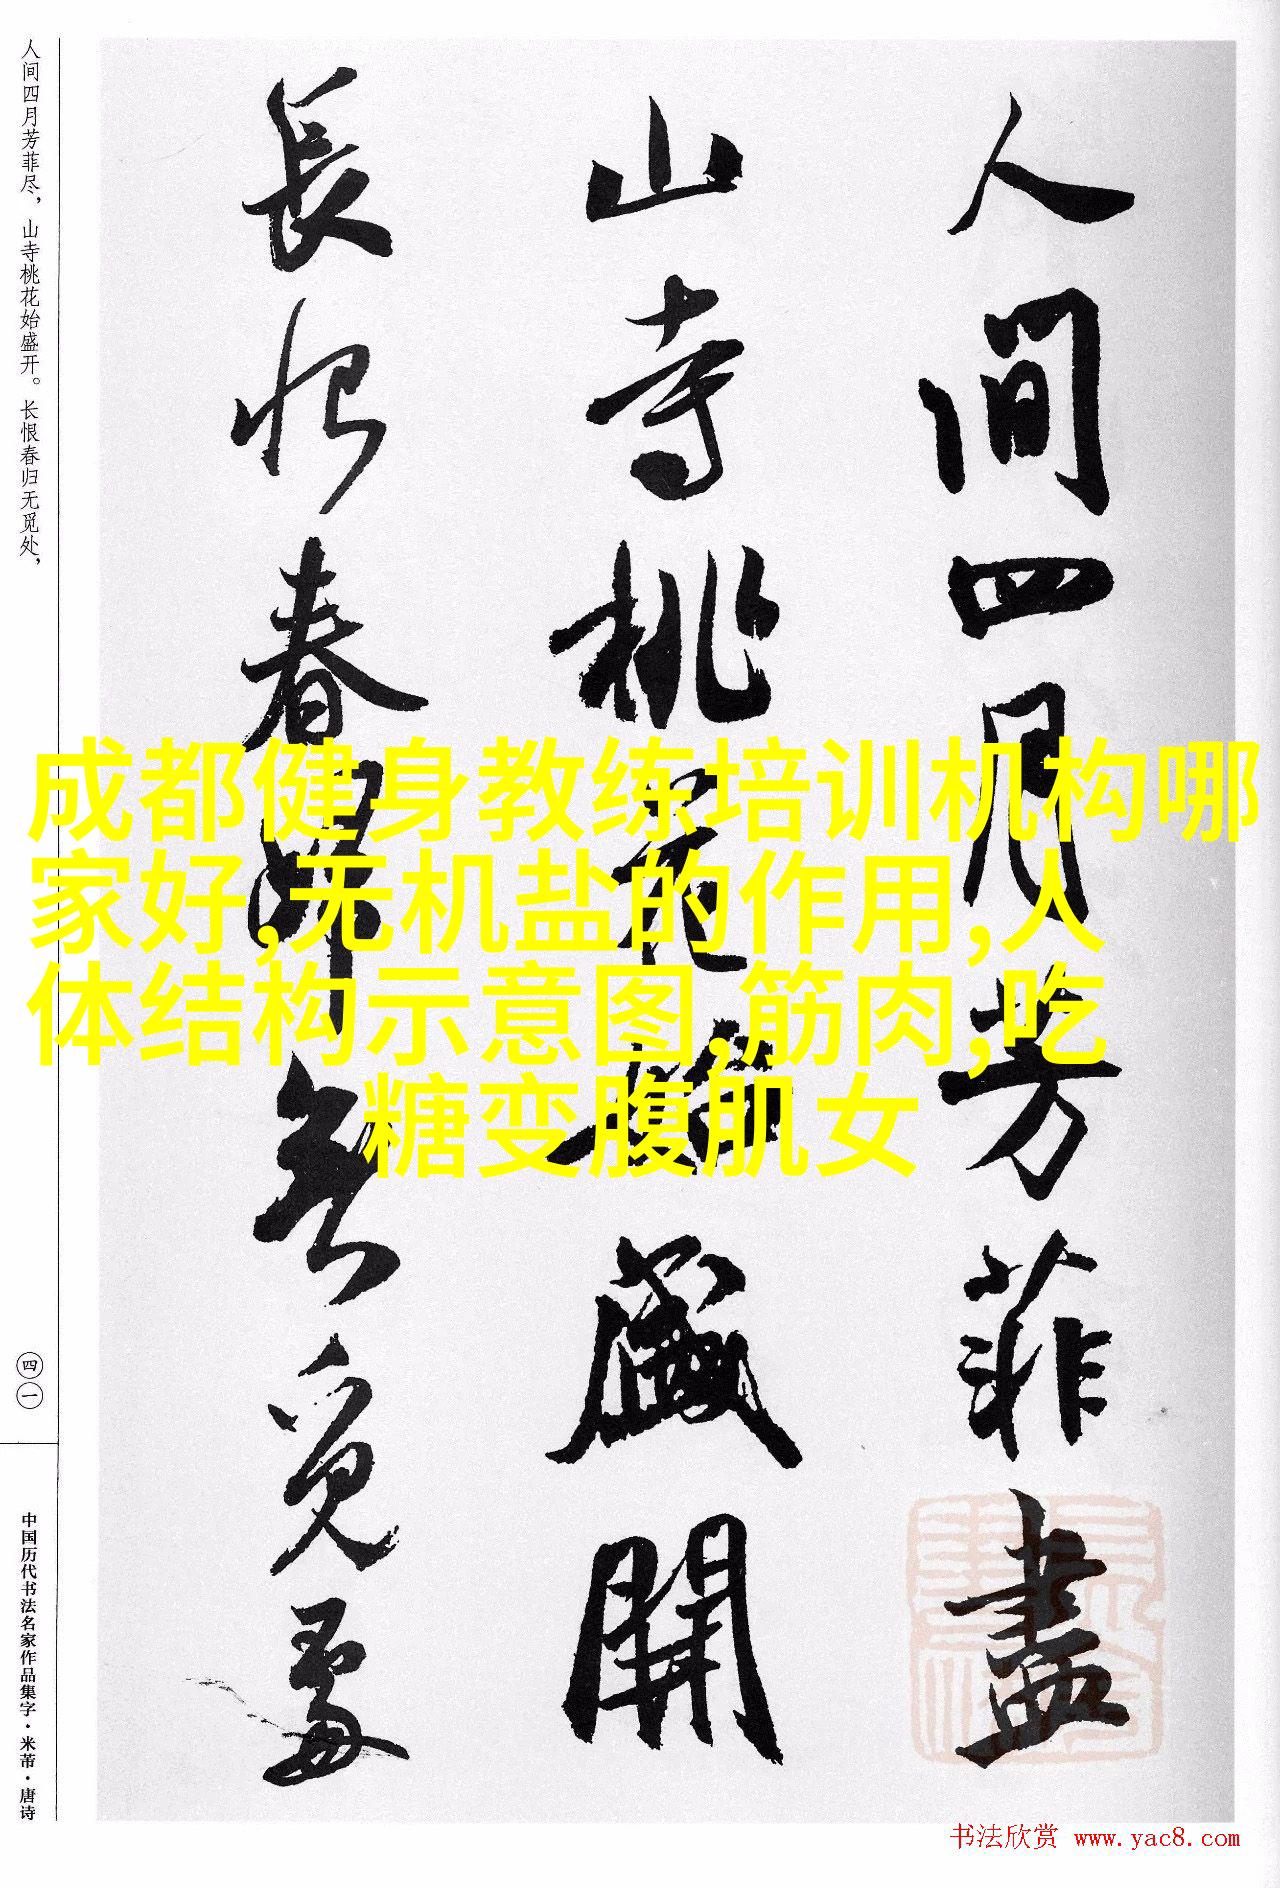 人间四月芳菲尽，山寺桃花始盛开。长恨春归无觅处，
四一
中国历代书法名家作品集字·米芾·唐诗
人間四月芳菲盡
山寺桃花始盛開
長恨春歸無覓處
成都健身教练培训机构哪
家好,无机盐的作用,人
体结构示意图,筋肉,吃
糖变腹肌女
书法欣赏 www.yac8.com